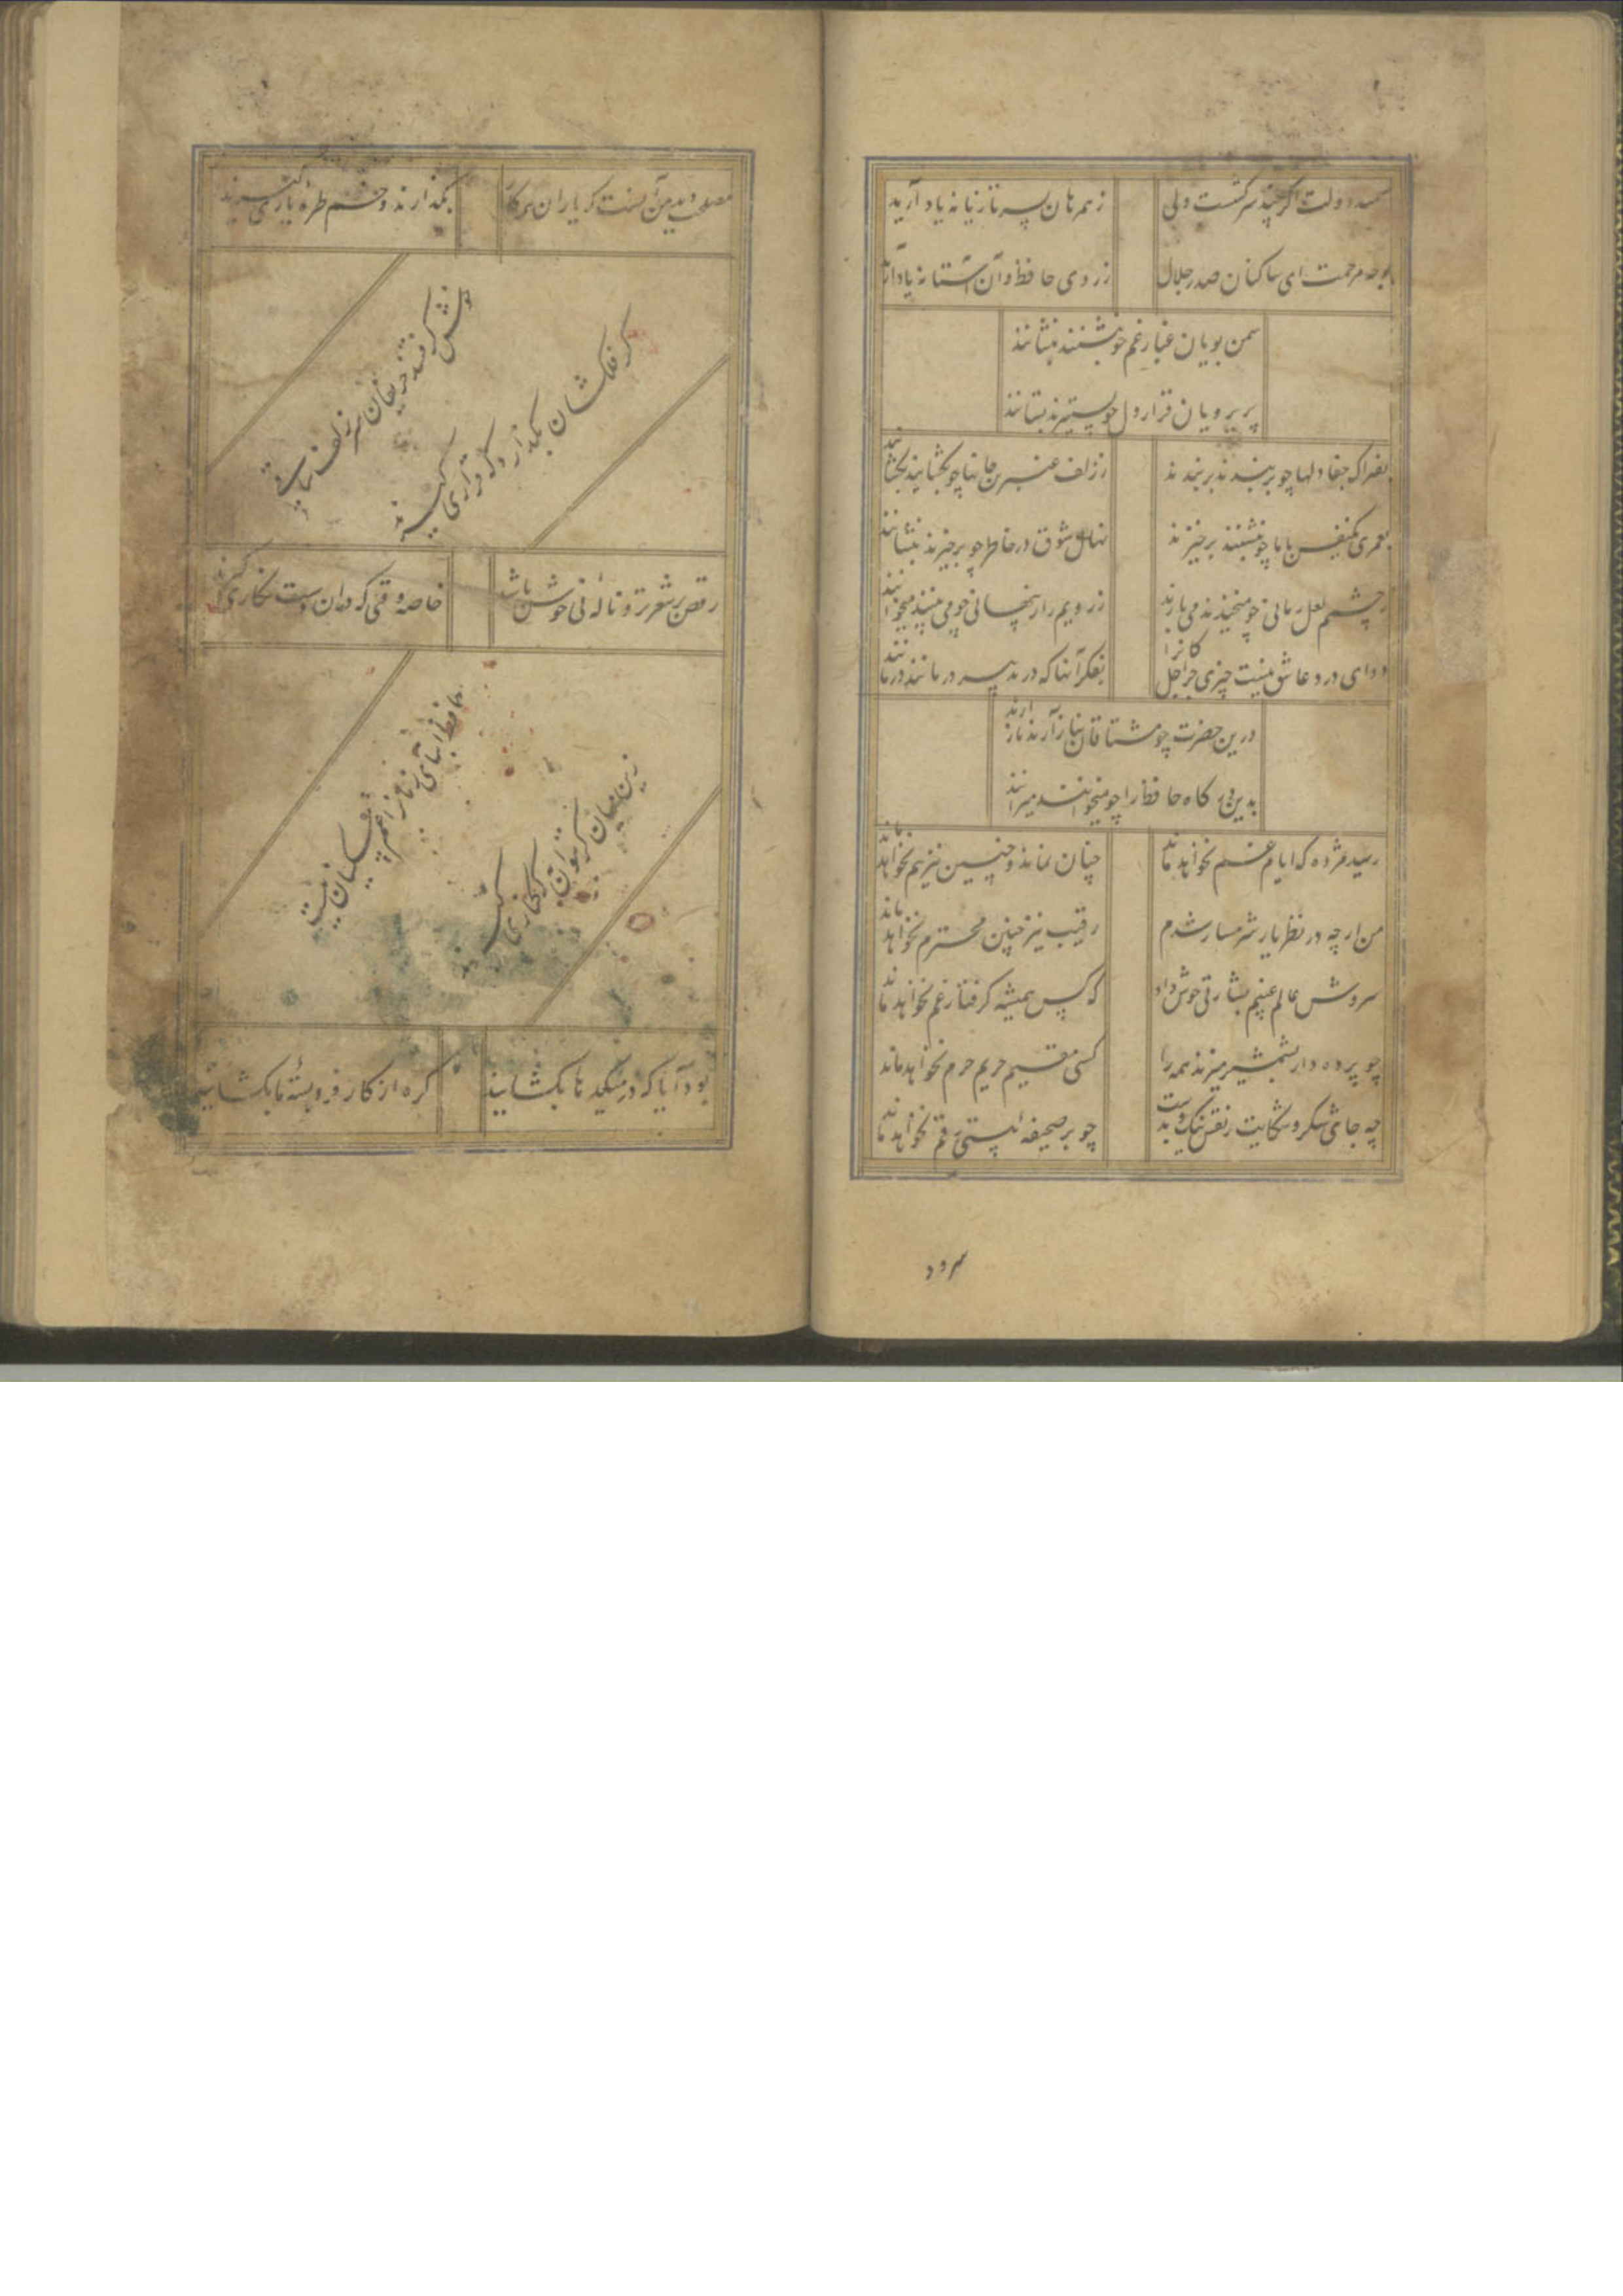 سمند دولت اگر چند سرکشست ولی
ز همرهان بسر تازیانه یاد آرید
بوجه مرحمت ای ساکنان صدر جلال
ز روی حافظ و آن آستانه یاد آرید
سمن بویان غبار غم چو بنشینند بنشانند
پری رویان قرار دل چو بستیزند بستانند
بفتراک جفا دلها چو بربندند بربندند
ز زلف عنبرین جانها چو بگشایند بگشایند
بعمری یکنفس با ما چو بنشینند برخیزند
نهال شوق در خاطر چو برخیزند بنشانند
ز چشمم لعل رمانی چو میخندند می بارند
ز رویم راز پنهانی چو می بینند میخوانند
دوای درد عاشق نیست چیزی جز اجل کانرا
بفکر آنها که در تدبیر درمانند درمانند
درین حضرت چو مشتاقان نیاز آرند ناز آرند
بدین درگاه حافظ را چو میخوانند میرانند
رسید مژده که ایام غم نخواهد ماند
چنان نماند و چنین نیز هم نخواهد ماند
من ار چه در نظر یار شرمسار شدم
رقیب نیز چنین محترم نخواهد ماند
سروش عالم غیبم بشارتی خوش داد
که کس همیشه گرفتار غم نخواهد ماند
چو پرده دار بشمشیر میزند همه را
کسی مقیم حریم حرم نخواهد ماند
چه جای شکر و شکایت ز نقش نیک و بدست
چو بر صحیفه هستی رقم نخواهد ماند
سرود
مصلحت دید من آنست که یاران همه کار
بگذارند و خم طره یاری گیرند
خوش گرفتند حریفان سر زلف ساقی
گر فلکشان بگذارد که قراری گیرند
رقص بر شعر تر و ناله نی خوش باشد
خاصه وقتی که در آن دست نگاری گیرند
حافظ ابنای زمانرا غم مسکینان نیست
زین میان گر بتوان به که کناری گیرند
بود آیا که در میکدها بگشایند
گره از کار فروبسته ما بگشایند